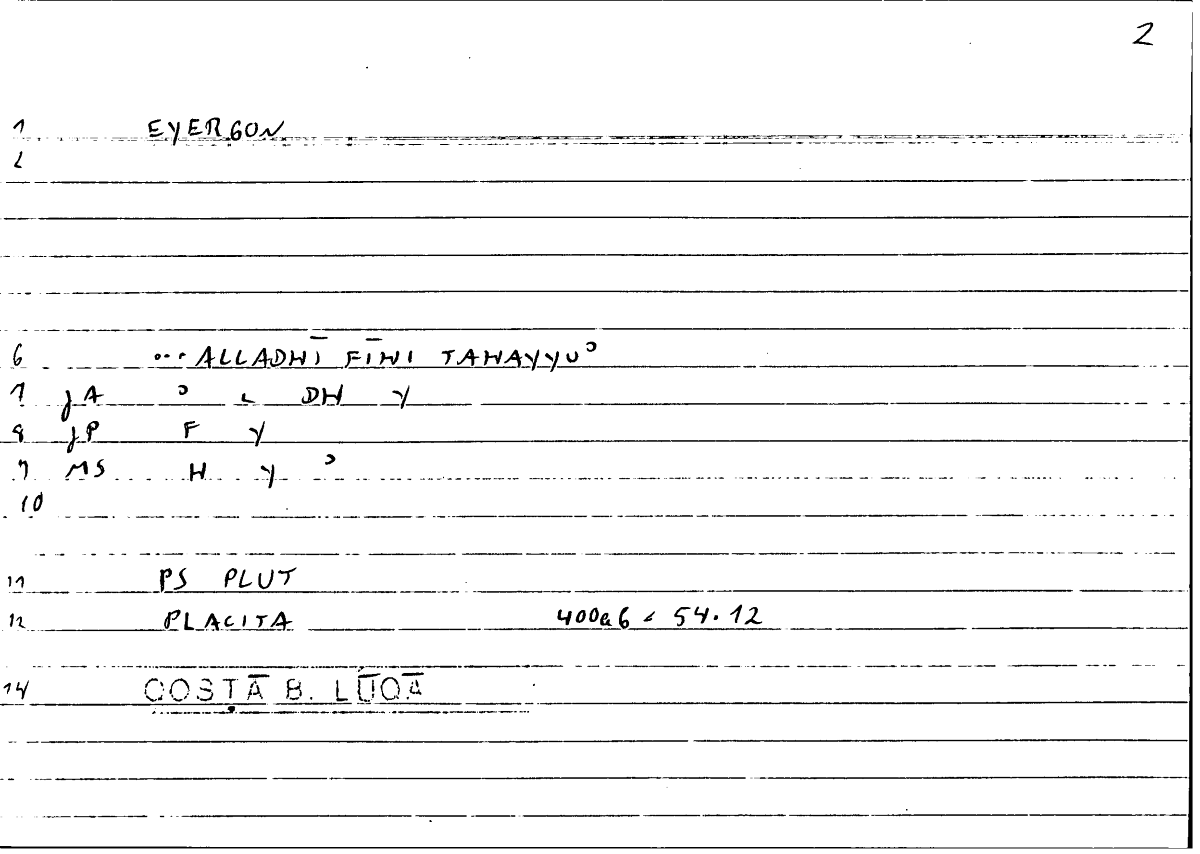 2
1 EYERGON
2
6 ... ALLADHĪ FĪHI TAHAYYUʾ
7 jA ʾ L DH Y
8 jP F Y
9 MS H Y ʾ
10
11 PS PLUT
12 PLACITA 400a6 = 54.12
14 QOSṬĀ B. LŪQĀ